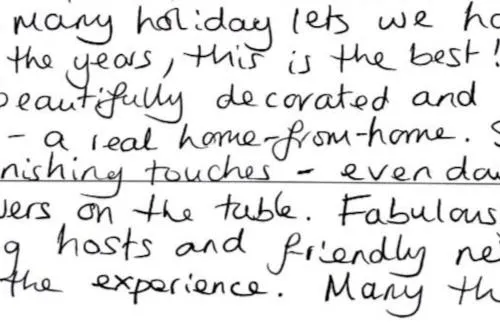 many holiday lets we ha
the years, this is the best!
beautifully decorated and
- a real home-from-home. S
nishing touches - even da
wers on the table. Fabulous
g hosts and friendly ne
the experience. Many th